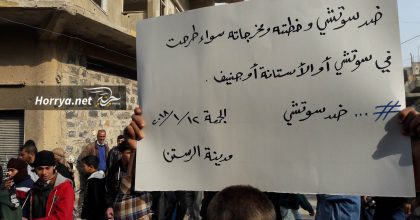 ضد سوتشي وخطته ومخرجاته سواء طرحت
في سوتشي أو الأستانة أو جنيف.
# ... ضد سوتشي
الجمعة ٢٠١٨/١/١٢
مدينة الرستن
Horrya.net حرية